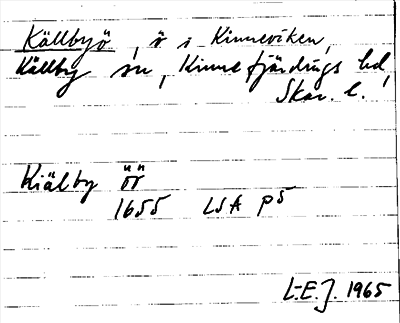 Källbyö, ö i Kinneviken,
Källby sn, Kinnefjärdings hd,
Skar. l.
Kiälby öö
1655 LSA p5
L-E.J. 1965